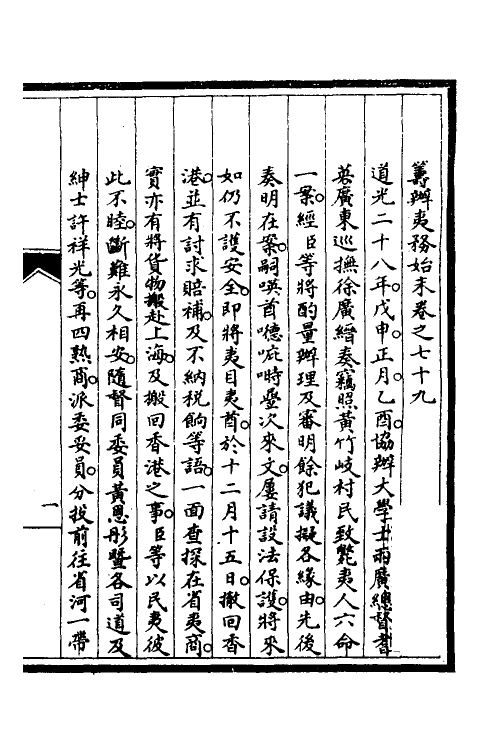 籌辦夷務始末卷之七十九
道光二十八年。戊申。正月。乙酉。協辦大學士兩廣總督耆
英廣東巡撫徐廣縉奏竊照黃竹岐村民致斃夷人六命
一案。經臣等將酌量辦理及審明餘犯議擬各緣由。先後
奏明在案。嗣㗸酋噫㕸啲疊次來文。屢請設法保護。將來
如仍不護安全。即將夷目夷酋。於十二月十五日。撤回香
港。並有討求賠補。及不納稅餉等語。一面查探在省夷商。
實亦有將貨物搬赴上海。及搬回香港之事。臣等以民夷彼
此不睦。斷難永久相安。隨督同委員黃恩彤暨各司道及
紳士許祥光等。再四熟商。派委妥員。分投前往省河一帶
一